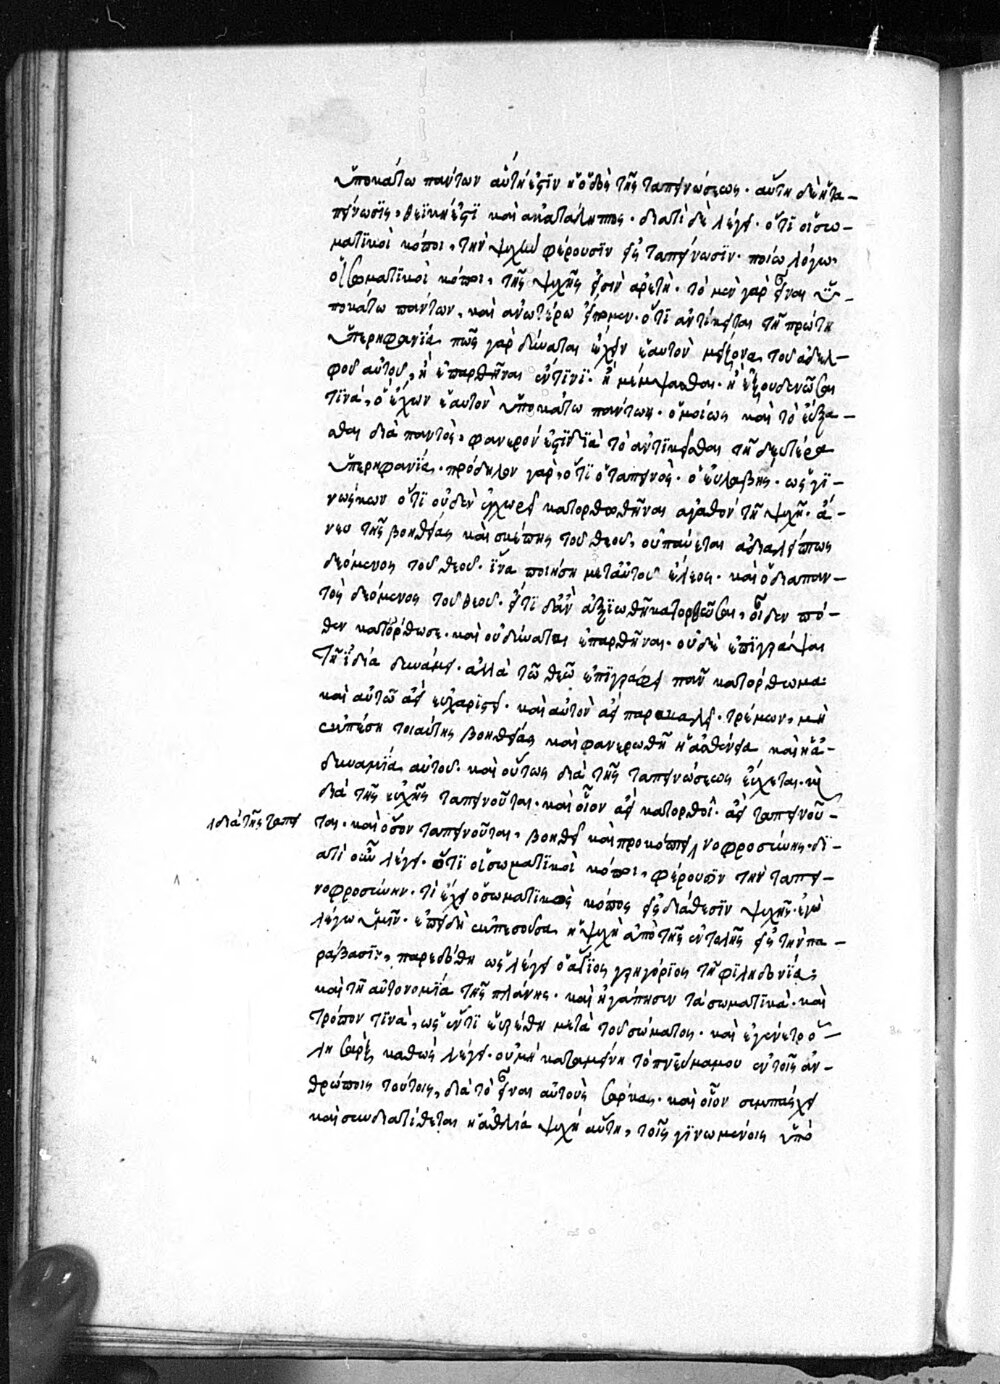 ὑποκάτω πάντων αὕτη ἐστὶν ἡ ὁδὸς τῆς ταπεινώσεως· αὕτη δὲ ἡ τα-
πείνωσις, θεϊκή ἐστι καὶ ἀκατάληπτος· διατί δὲ λέγει· ὅτι οἱ σω-
ματικοὶ κόποι, τὴν ψυχὴν φέρουσιν εἰς ταπείνωσιν· ποίω λόγω,
οἱ σωματικοὶ κόποι, τῆς ψυχῆς εἰσὶν ἀρετή· τὸ μὲν γὰρ εἶναι ὑ-
ποκάτω πάντων, καὶ ἀνωτέρω εἴπομεν· ὅτι ἀντίκειται τῆ πρώτη
ὑπερηφανία, πῶς γὰρ δύναται ἔχειν ἑαυτὸν μείζονα τοῦ ἀδελ-
φοῦ αὐτοῦ, ἢ ἐπαρθῆναι ἔν τινι· ἢ μέμψασθαι· ἢ ἐξουδενῶσαι
τινά, ὁ ἔχων ἑαυτὸν ὑποκάτω πάντων· ὁμοίως καὶ τὸ εὔξα-
σθαι διὰ παντὸς, φανερόν ἐστι διὰ τὸ ἀντικεῖσθαι τῆ δευτέρα
ὑπερηφανία· πρόδηλον γὰρ, ὅτι ὁ ταπεινὸς· ὁ εὐλαβὴς· ὡς γι-
νώσκων ὅτι οὐδὲν ἐγχωρεῖ κατορθωθῆναι ἀγαθὸν τῆ ψυχῆ· ἄ-
νευ τῆς βοηθείας καὶ σκέπης τοῦ θεοῦ, οὐ παύεται ἀδιαλείπτως
δεόμενος τοῦ θεοῦ· ἵνα ποιήση μετ αὐτοῦ ἔλεος· καὶ ὁ διαπαν-
τὸς δεόμενος τοῦ θεοῦ· ἔτι δἂν ἀξιωθῆ κατορθῶσαι, οἶδεν πό-
θεν κατόρθωσε· καὶ οὐ δύναται ἐπαρθῆναι· οὐδὲ ἐπιγράψαι
τῆ ἰδία δυνάμει· ἀλλὰ τῶ θεῶ ἐπιγράφει πᾶν κατόρθωμα·
καὶ αὐτῶ ἀεὶ εὐχαριστεῖ· καὶ αὐτὸν ἀεὶ παρακαλεῖ· τρέμων, μὴ
ἐκπέση τοιαύτης βοηθείας καὶ φανερωθῆ ἡ ἀσθένεια καὶ ἡ ἀ-
δυναμία αὐτοῦ· καὶ οὕτως διὰ τῆς ταπεινώσεως εὔχεται· καὶ
διὰ τῆς εὐχῆς ταπεινοῦται· καὶ οἷον ἀεὶ κατορθοῖ· ἀεὶ ταπεινοῦ-
διὰ τῆς ταπει
ται· καὶ ὅσον ταπεινοῦται, βοηθεῖ καὶ προκόπτει νοφροσύνης· δι-
ατί οὖν λέγει· ὅτι οἱ σωματικοὶ κόποι, φέρουσιν τὴν ταπει-
νοφροσύνην· τί ἔχει ὁ σωματικὸς κόπος εἰς διάθεσιν ψυχῆς· ἐγὼ
λέγω ὑμῖν· ἐπειδὴ ἐκπεσοῦσα ἡ ψυχὴ ἀπὸ τῆς ἐντολῆς εἰς τὴν πα-
ράβασιν, παρεδόθη ὡς λέγει ὁ ἅγιος γρηγόριος τῆ φιληδονία;
καὶ τῆ αὐτονομία τῆς πλάνης· καὶ ἠγάπησεν τὰ σωματικὰ· καὶ
τρόπον τινὰ, ὡς ἕν τι εὑρέθη μετὰ τοῦ σώματος· καὶ ἐγένετο ὅ-
λη σὰρξ καθὼς λέγει· οὐ μὴ καταμείνη τὸ πνεῦμά μου ἐν τοῖς ἀν-
θρώποις τούτοις, διὰ τὸ εἶναι αὐτοὺς σάρκας· καὶ οἷον συμπάσχει
καὶ συνδιατίθεται ἡ ἀθλία ψυχὴ αὕτη, τοῖς γινομένοις ὑπὸ